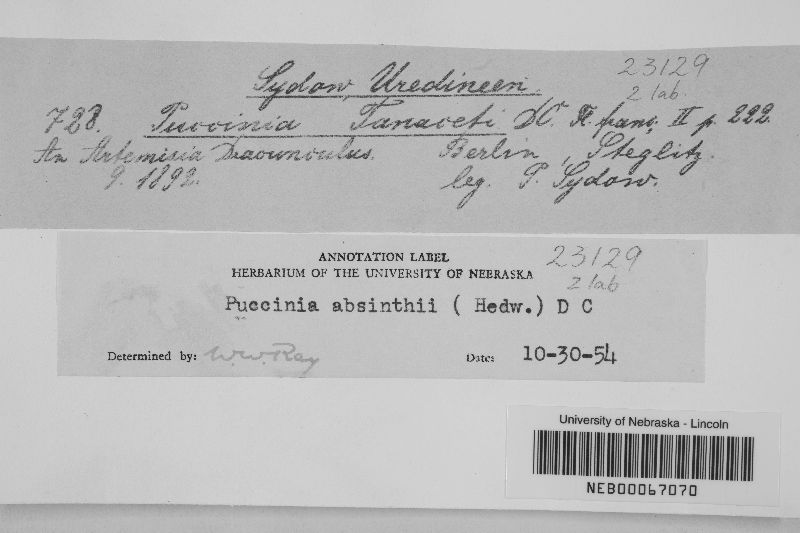 Sydow, Uredineen.
23129
2 lab
728. Puccinia Tanaceti DC. Fl. franc. II p. 222.
An Artemisia Dracunculus. Berlin, Steglitz.
9. 1892. leg. P. Sydow.
ANNOTATION LABEL
23129
HERBARIUM OF THE UNIVERSITY OF NEBRASKA
2 lab
Puccinia absinthii ( Hedw.) D C
Determined by: W.W. Ray Date: 10-30-54
University of Nebraska - Lincoln
NEB00067070